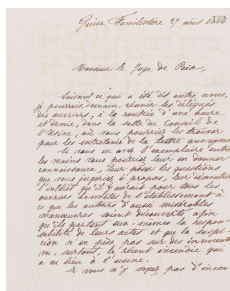 Guise Familistère 27 août 1888
Monsieur le Juge de Paix
Suivant ce qui a été dit entre nous,
je pourrais, demain, réunir les délégués
des ouvriers, à la rentrée d'une heure
et demie, dans la salle du Conseil de
l'Usine, où vous pourriez les trouver
pour les entretenir de la lettre anonyme.
Si vous en avez l'exemplaire entre
les mains vous pourriez leur en donner
connaissance, leur poser les questions
que vous jugeriez à propos, leur démontrer
l'intérêt qu'il y aurait pour tous les
ouvriers honnêtes de l'établissement à
ce que les auteurs d'aussi misérables
manœuvres soient découverts afin
qu'ils portent eux-mêmes la respon-
sabilité de leurs actes et que la suspi-
cion n'en pèse pas sur des innocents
surtout, le récent incendie qui
a eu lieu à l'usine.
Si vous n'y voyez pas d'incon